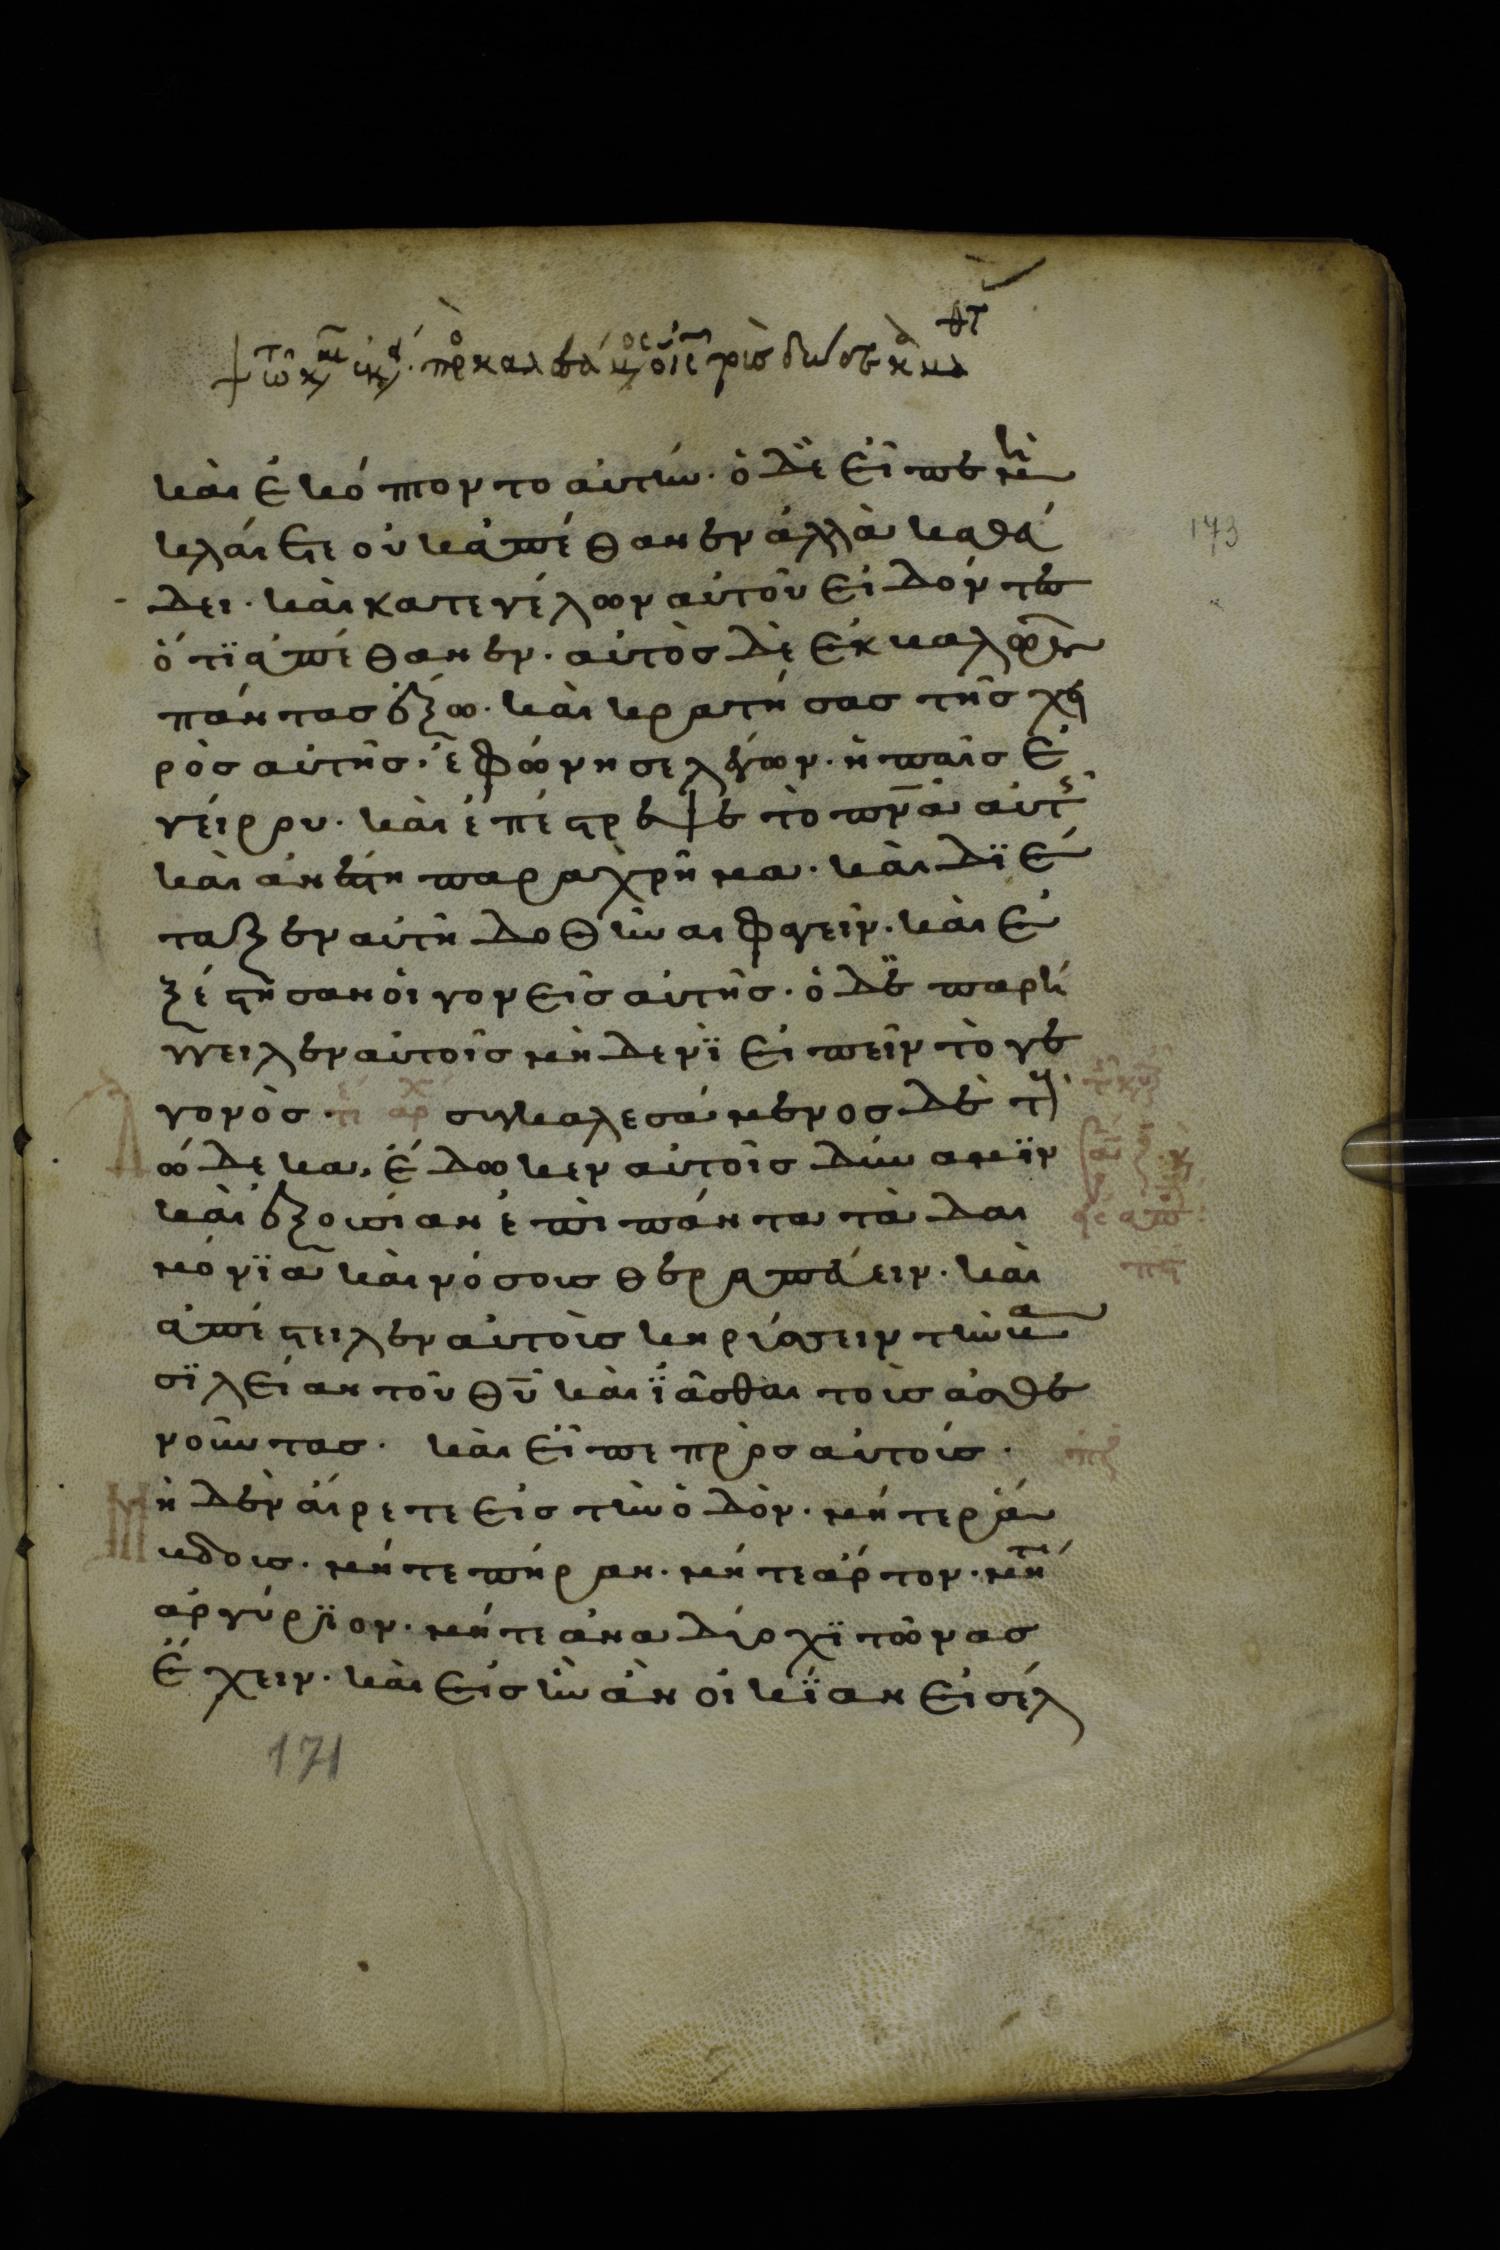 173
καὶ ἐκόπτοντο αὐτήν· ὁ δὲ εἶπε μὴ
κλάιετε οὐκ ἀπέθανεν ἀλλὰ καθεύ
δει· καὶ κατεγέλων αὐτοῦ εἰδότες
ὅτϊ ἀπέθανεν· αὐτὸσ δὲ ἐκβαλὼν
πάντασ ἔξω· καὶ κρατήσασ τῆσ χει
ρὸσ αὐτῆσ· ἐφώνησε λέγων· ἡ παῖσ ἐ
γείρου· καὶ ἐπέστρεψε τὸ πν̅α αὐτῆς
καὶ ἀνέστη παραχρῆμα· καὶ δϊέ
ταξεν αὐτῆ δοθῆναι φαγεῖν· καὶ ἐ
ξέστησαν οἱ γονεῖσ αὐτῆσ· ὁ δὲ παρή
γγειλεν αὐτοῖσ μὴδενῒ εἰπεῖν τὸ γε
γονὸσ· τέλος ἀρχὴ συγκαλεσάμενοσ δὲ τοὺς
δώδεκα, ἔδωκεν αὐτοῖσ δύναμϊν
καὶ ἐξουσίαν ἐπὶ πάντα τὰ δαι
μόνϊα καὶ νόσουσ θεραπεύειν· καὶ
ἀπέστειλεν αὐτοὺσ κηρύσσειν τὴν βα
σϊλείαν τοῦ θ̅υ καὶ ϊᾶσθαι τοὺσ ἀσθε
νοῦντασ· καὶ εἶπε πρὸσ αὐτούσ·
μηδὲν αἴρετε εἰσ τὴν ὁδὸν· μήτε ῥά
βδουσ· μήτε πήραν· μήτε ἄρτον· μήτε
ἀργύρϊον· μήτε ἀνα δύο χϊτῶνασ
ἔχειν· καὶ εἰσ ἣν ἂν οἰκΐαν εἰσέλ
171